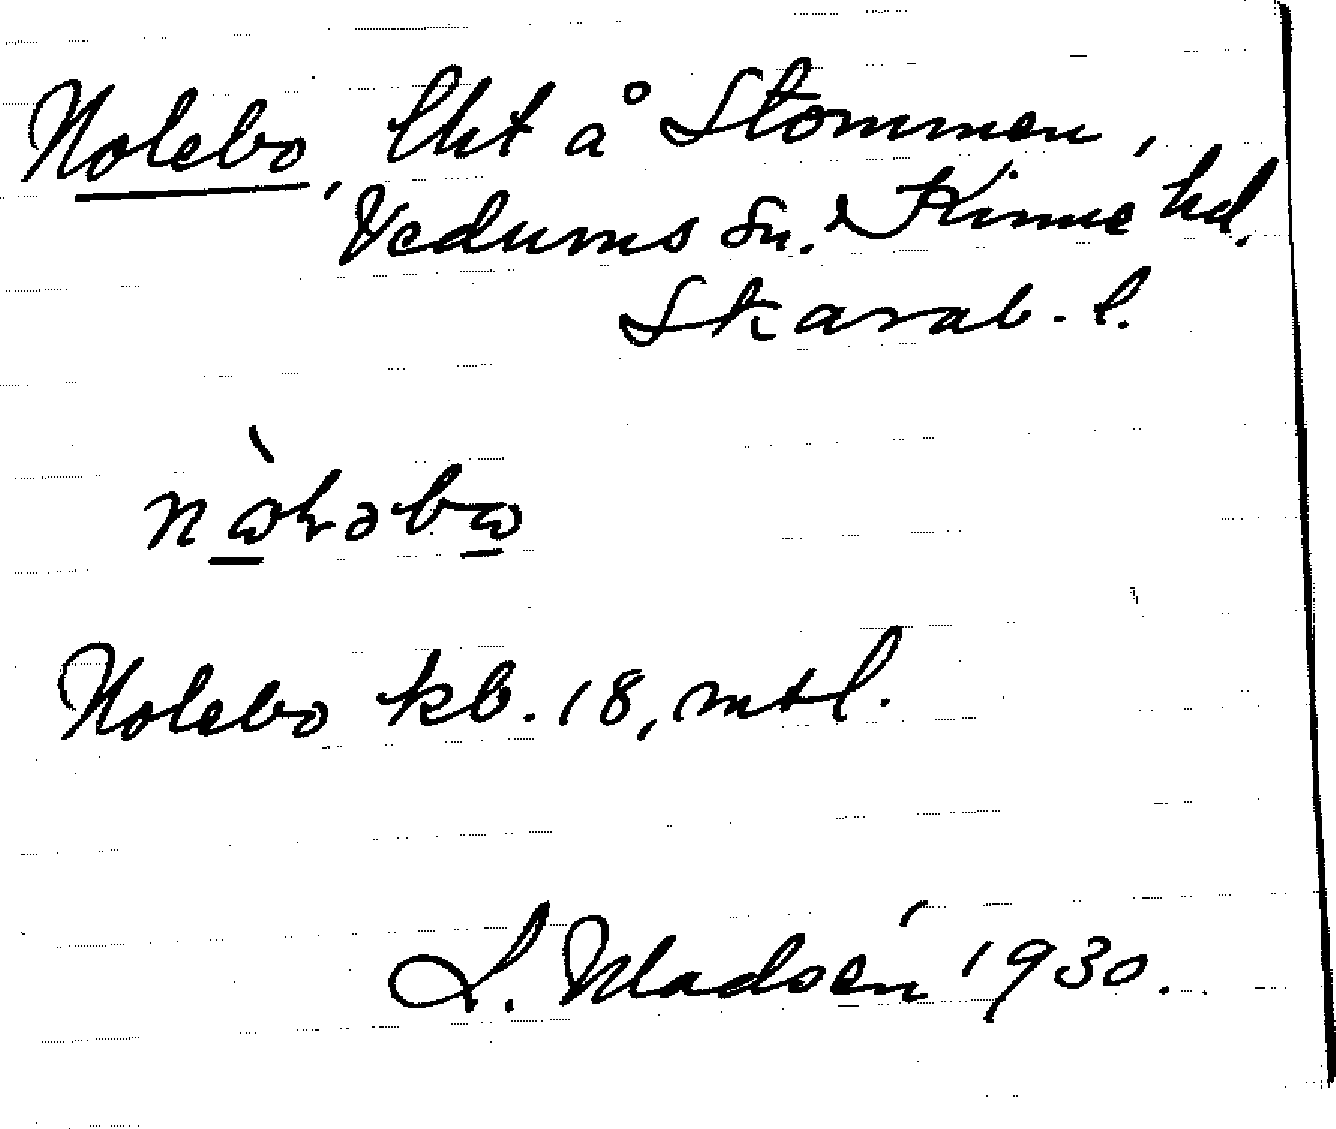 Nolebo, lht å Stommen,
Vedums sn. Kinne hd.
Skarab. l.
Nolebo kb. 18, mtl.
L. Madsén 1930.